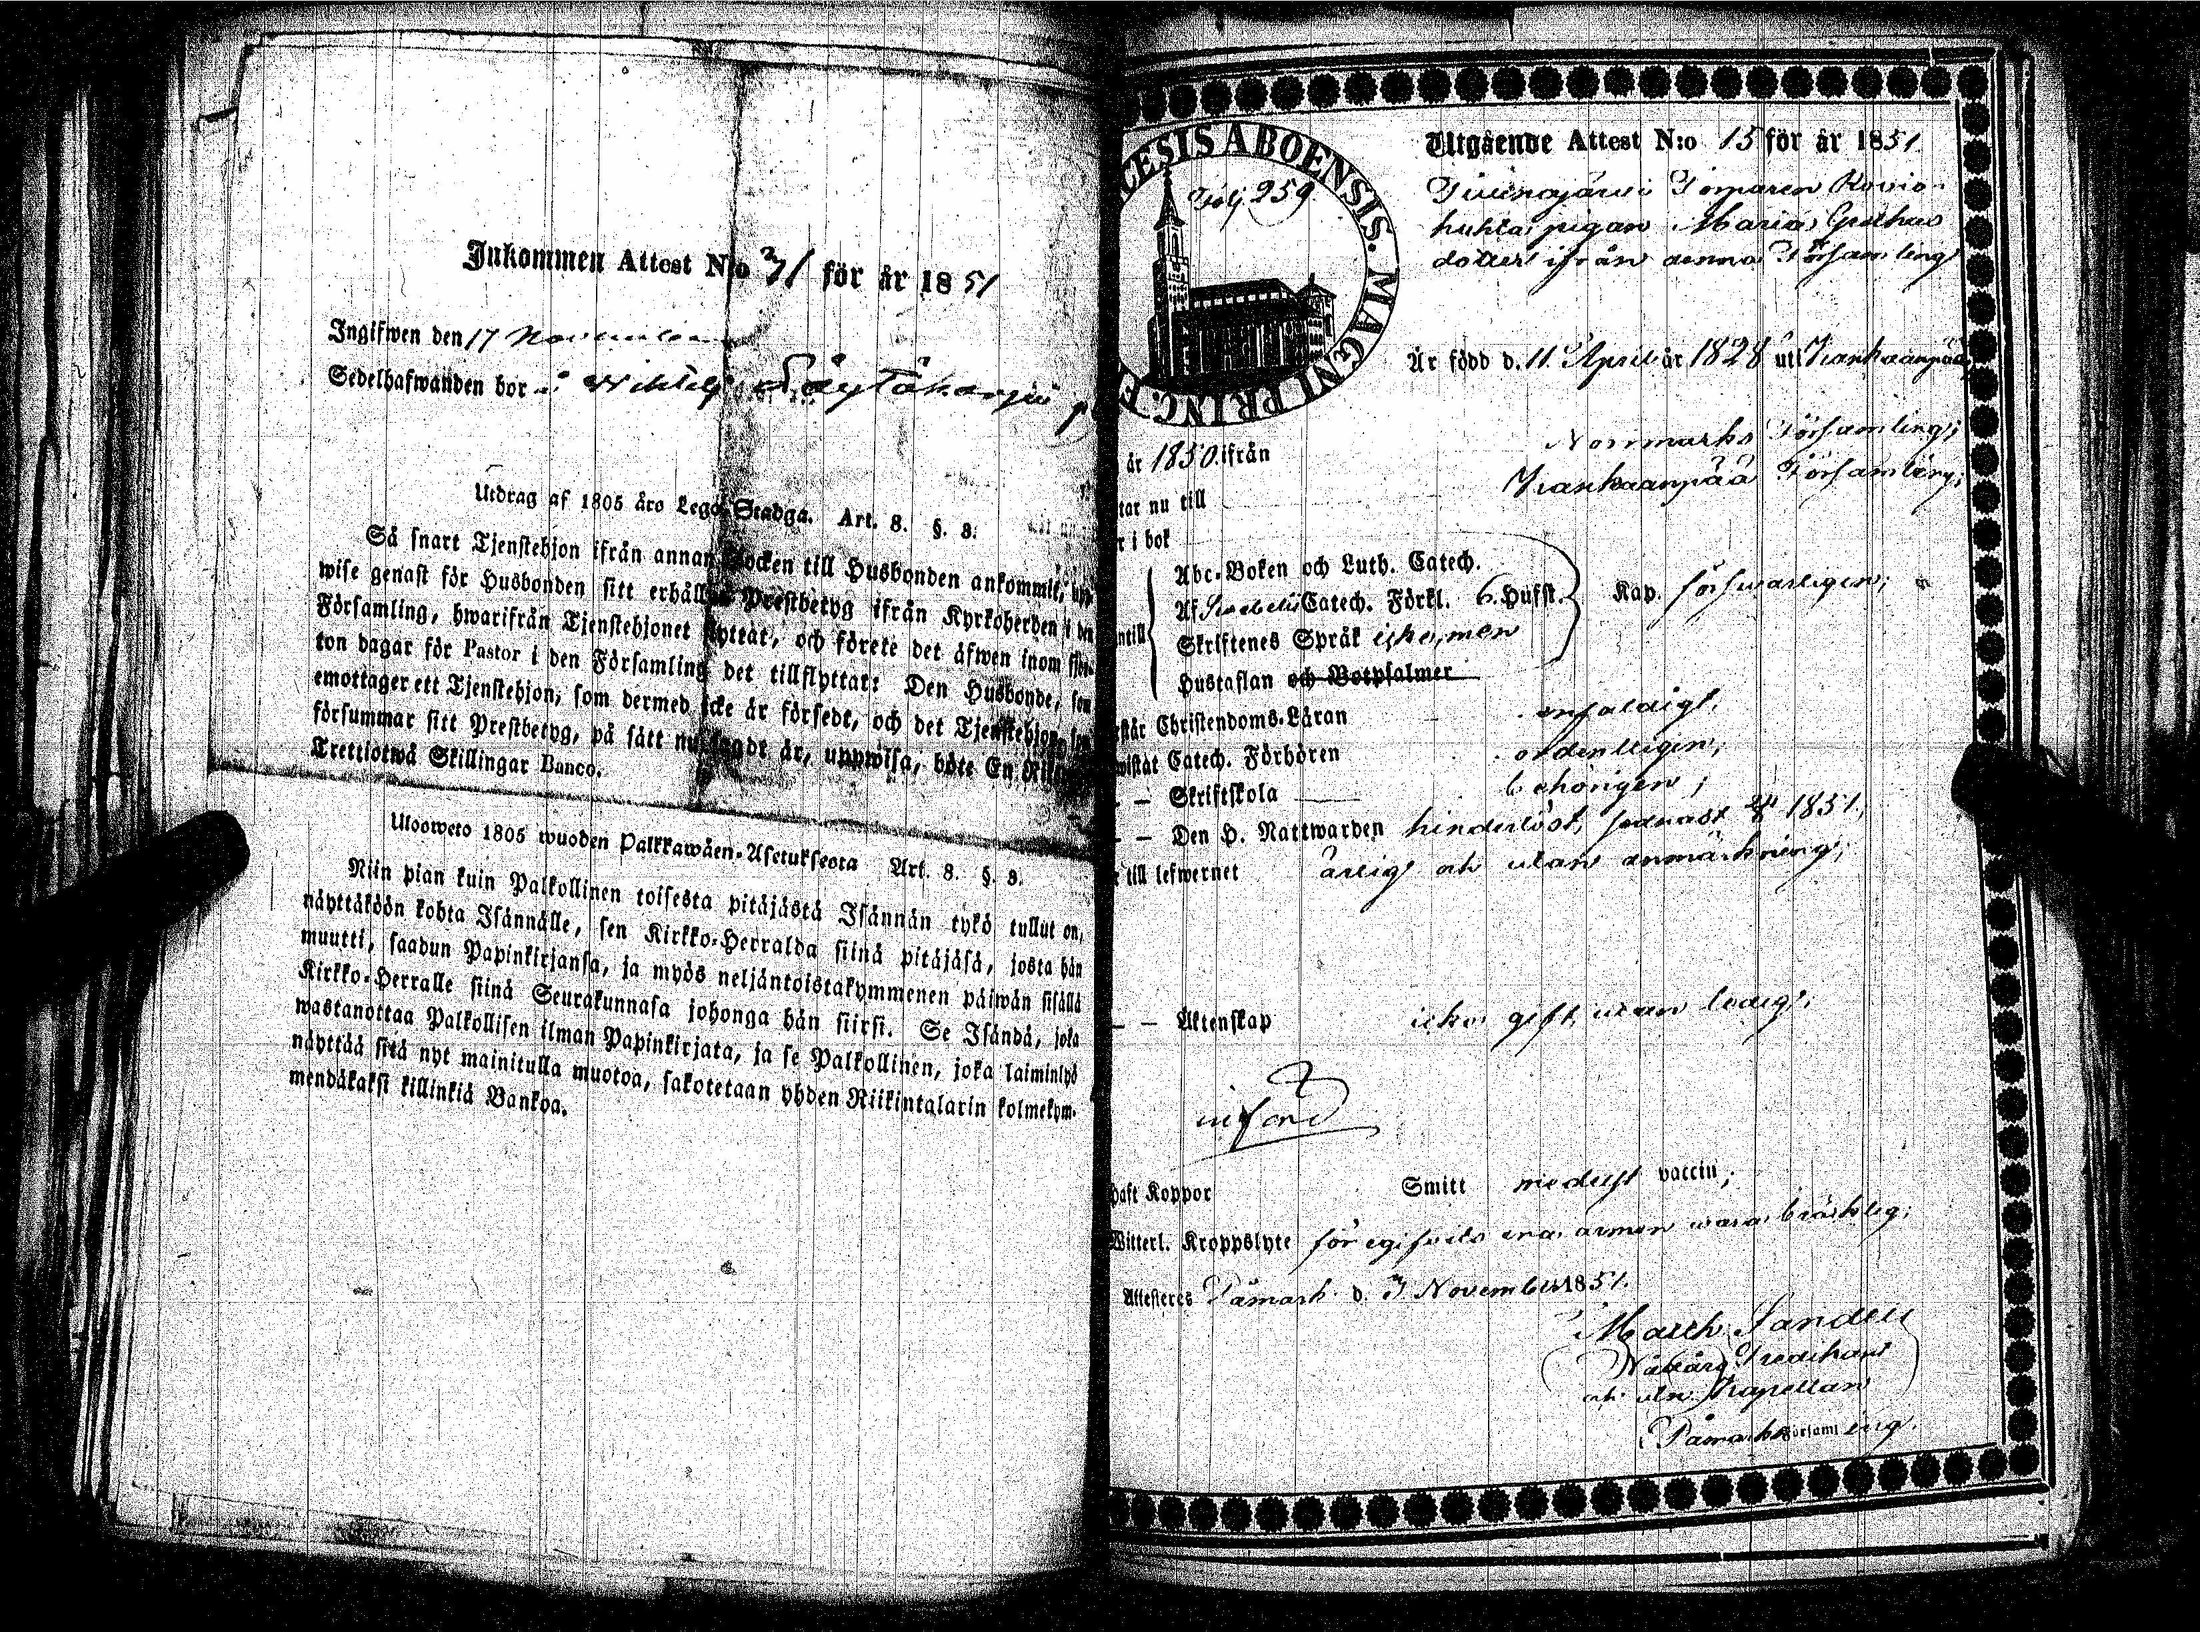 Inkommen Attest N:o 71 för år 1851
Ingifwen den 17 November
Sedelhafwanden bor i
Utdrag af 1805 års Lego-Stadga. Art. 8. §. 8.
Så snart Tjenstehjon ifrån annan Socken till Husbonden ankommit, upp
wise genast för Husbonden sitt erhållna Prestbetyg ifrån Kyrkoherden i den
Församling, hwarifrån Tjenstehjonet flyttat, och förete det äfwen inom fjor-
ton dagar för Pastor i den Församling det tillflyttat: Den Husbonde, som
emottager ett Tjenstehjon, som dermed icke är försedt, och det Tjenstehjon som
försummar sitt Prestbetyg, på sätt nu sagdt är, uppwisa, böte En
Trettiotwå Skillingar Banco.
Ulosweto 1805 wuoden Palkkawäen-Asetuksesta Art. 8. §. 8.
Niin pian kuin Palkollinen toisesta pitäjästä Isännän tykö tullut on,
näyttäköön kohta Isännälle, sen Kirkko-Herralda siinä pitäjäsä, josta hän
muutti, saadun Papinkirjansa, ja myös neljäntoistakymmenen päiwän sisällä
Kirkko-Herralle siinä Seurakunnasa johonga hän siirsi. Se Isändä, joka
wastanottaa Palkollisen ilman Papinkirjata, ja se Palkollinen, joka laiminlyö
näyttää sitä nyt mainitulla muotoa, sakotetaan yhden Riikintalarin kolmekym-
mendäkaksi killinkiä Bankoa.
CESIS ABOENSIS. MAGNI PRINC. F
Folj 259
Utgående Attest N:o 15 för år 1851.
huhta pigan Maria
dotter ifrån denna Församling
Är född d. 11 April år 1828 uti Kankaanpää
år 1850 ifrån Norrmarks Församling;
tar nu till Kankaanpää Församling;
r i bok
Abc-Boken och Luth. Catech.
Af Swebelii Catech. Förkl. 6. Hufst. Kap. försvarligen;
ntill Skriftenes Språk icke, men
Hustaflan och Botpsalmer
står Christendoms-Läran enfaldigt,
wistat Catech. Förhören ordentligen;
– – Skriftskola behörigen;
– – Den H. Nattwarden hinderlöst, sednast 1851,
till lefwernet ärlig och utan anmärkning;
– – Äktenskap icke gift, utan ledig;
haft Koppor Smitt medelst vaccin;
Witterl. Kroppslyte för ena armen wara bräcklig;
Attesteras Påmark d. 3 November 1851.
Math.
Predikant
och Kapellan
Påmarks Församling.